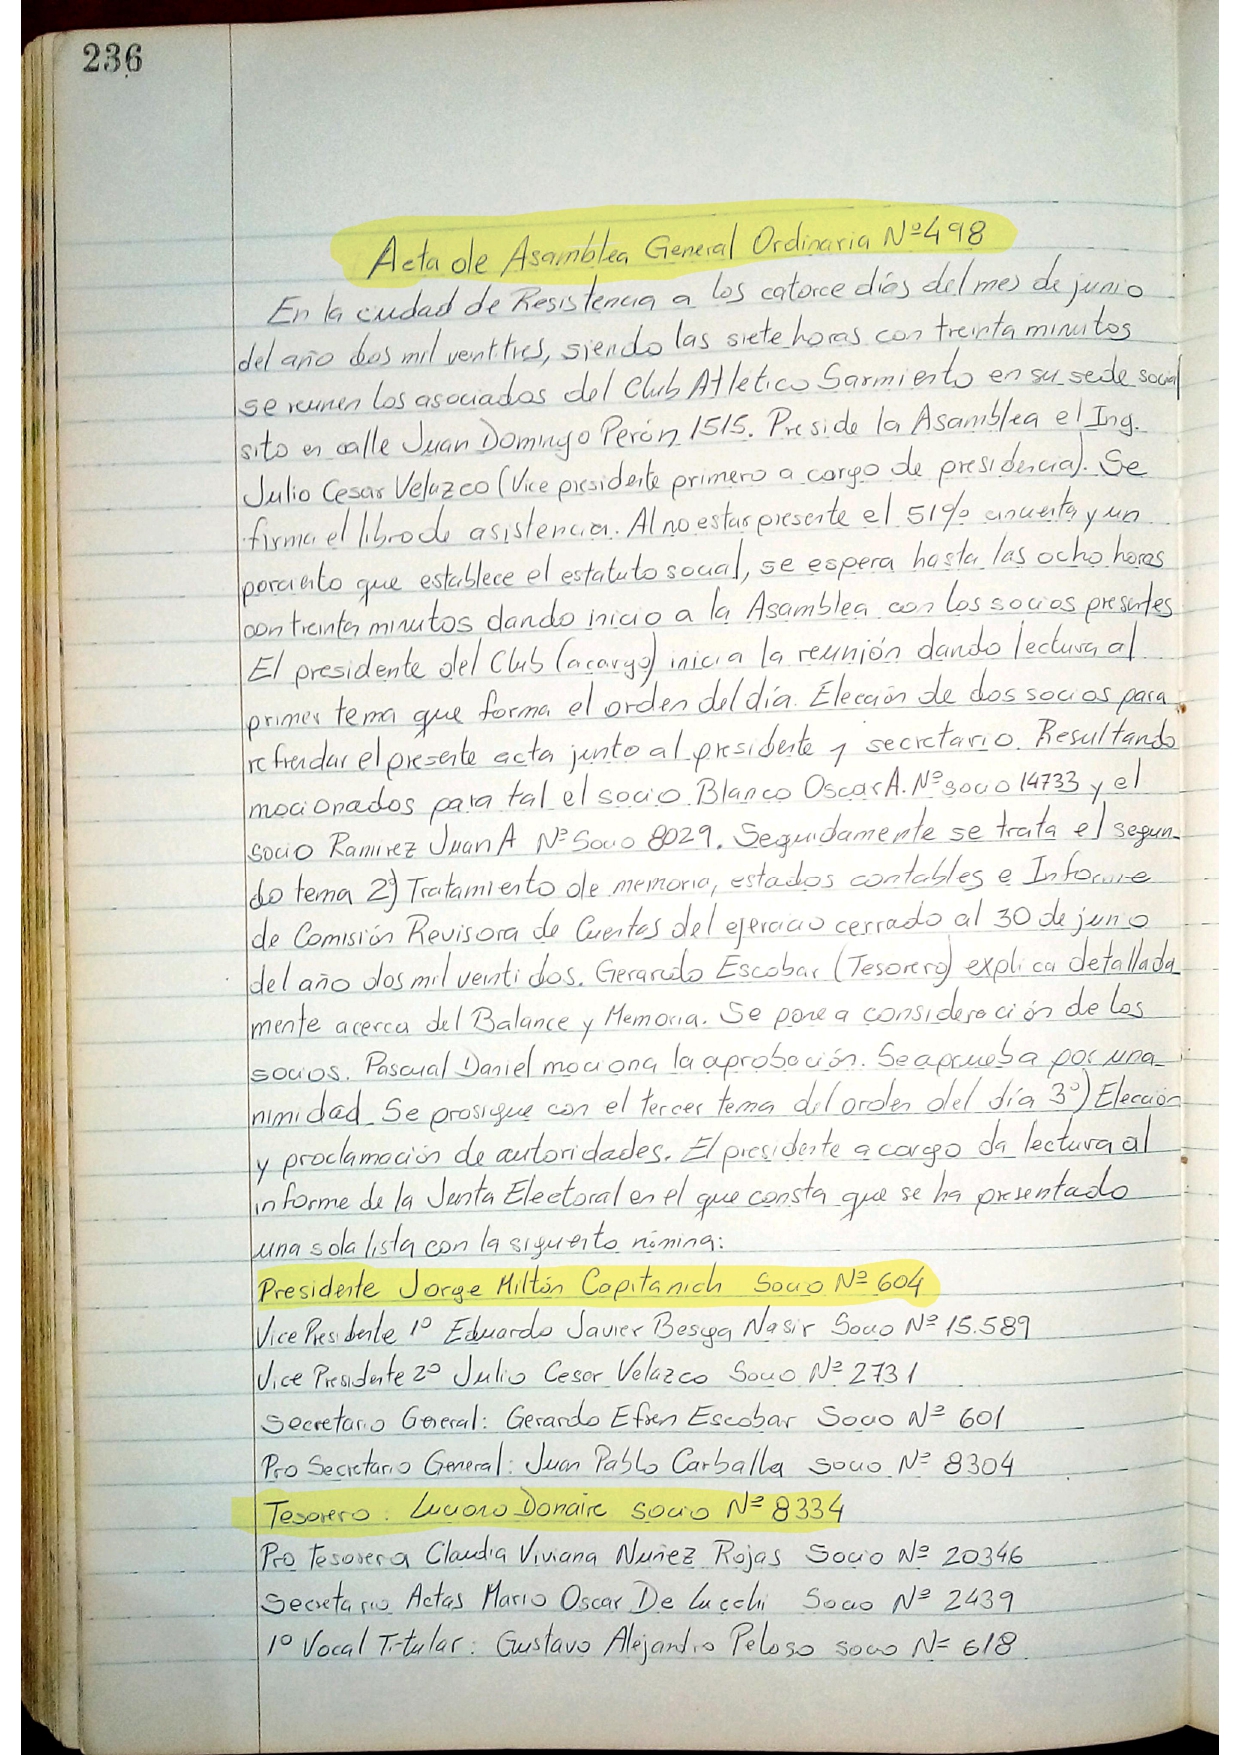 236
Acta de Asamblea General Ordinaria Nº498
En la ciudad de Resistencia a los catorce días del mes de junio
del año dos mil ventitres, siendo las siete horas con treinta minutos
se reunen los asociados del Club Atletico Sarmiento en su sede social
sito en calle Juan Domingo Perón 1515. Preside la Asamblea el Ing.
Julio Cesar Velazco (Vice presidente primero a cargo de presidencia). Se
firma el libro de asistencia. Al no estar presente el 51% cincuenta y un
porciento que establece el estatuto social, se espera hasta las ocho horas
con treinta minutos dando inicio a la Asamblea con los socios presentes
El presidente del Club (a cargo) inicia la reunión dando lectura al
primer tema que forma el orden del día. Elección de dos socios para
refrendar el presente acta junto al presidente y secretario. Resultando
mocionados para tal el socio Blanco Oscar A. Nº socio 14733 y el
socio Ramirez Juan A Nº Socio 8029. Seguidamente se trata el segun-
do tema 2) Tratamiento de memoria, estados contables e Informe
de Comisión Revisora de Cuentas del ejercicio cerrado al 30 de junio
del año dos mil ventidos. Gerardo Escobar (Tesorero) explica detallada
mente acerca del Balance y Memoria. Se pone a consideración de los
socios. Pascual Daniel mociona la aprobación. Se aprueba por una-
nimidad. Se prosigue con el tercer tema del orden del día 3º) Elección
y proclamación de autoridades. El presidente a cargo da lectura al
informe de la Junta Electoral en el que consta que se ha presentado
una sola lista con la siguiente nómina:
Presidente Jorge Miltón Capitanich Socio Nº 604
Vice Presidente 1º Eduardo Javier Besga Nasir Socio Nº 15.589
Vice Presidente 2º Julio Cesar Velazco Socio Nº 2731
Secretario General: Gerardo Efren Escobar Socio Nº 601
Pro Secretario General: Juan Pablo Carballa socio Nº 8304
Tesorero: Luciano Donaire socio Nº 8334
Pro Tesorera Claudia Viviana Nuñez Rojas Socio Nº 20346
Secretario Actas Mario Oscar De Lucchi Socio Nº 2439
1º Vocal Titular: Gustavo Alejandro Peloso socio Nº 618